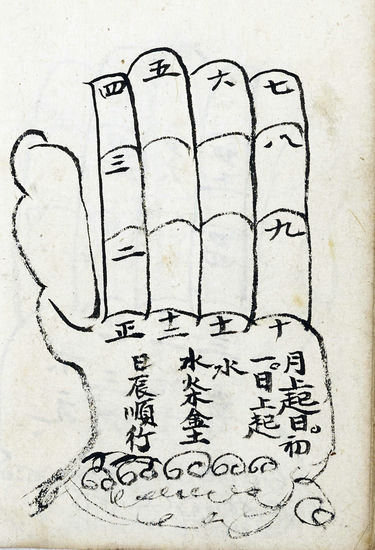 四 五 六 七
三 八
二 九
正 十二 十一 十
月上起日。初
一。日上起
水
水火木金土
日辰順行